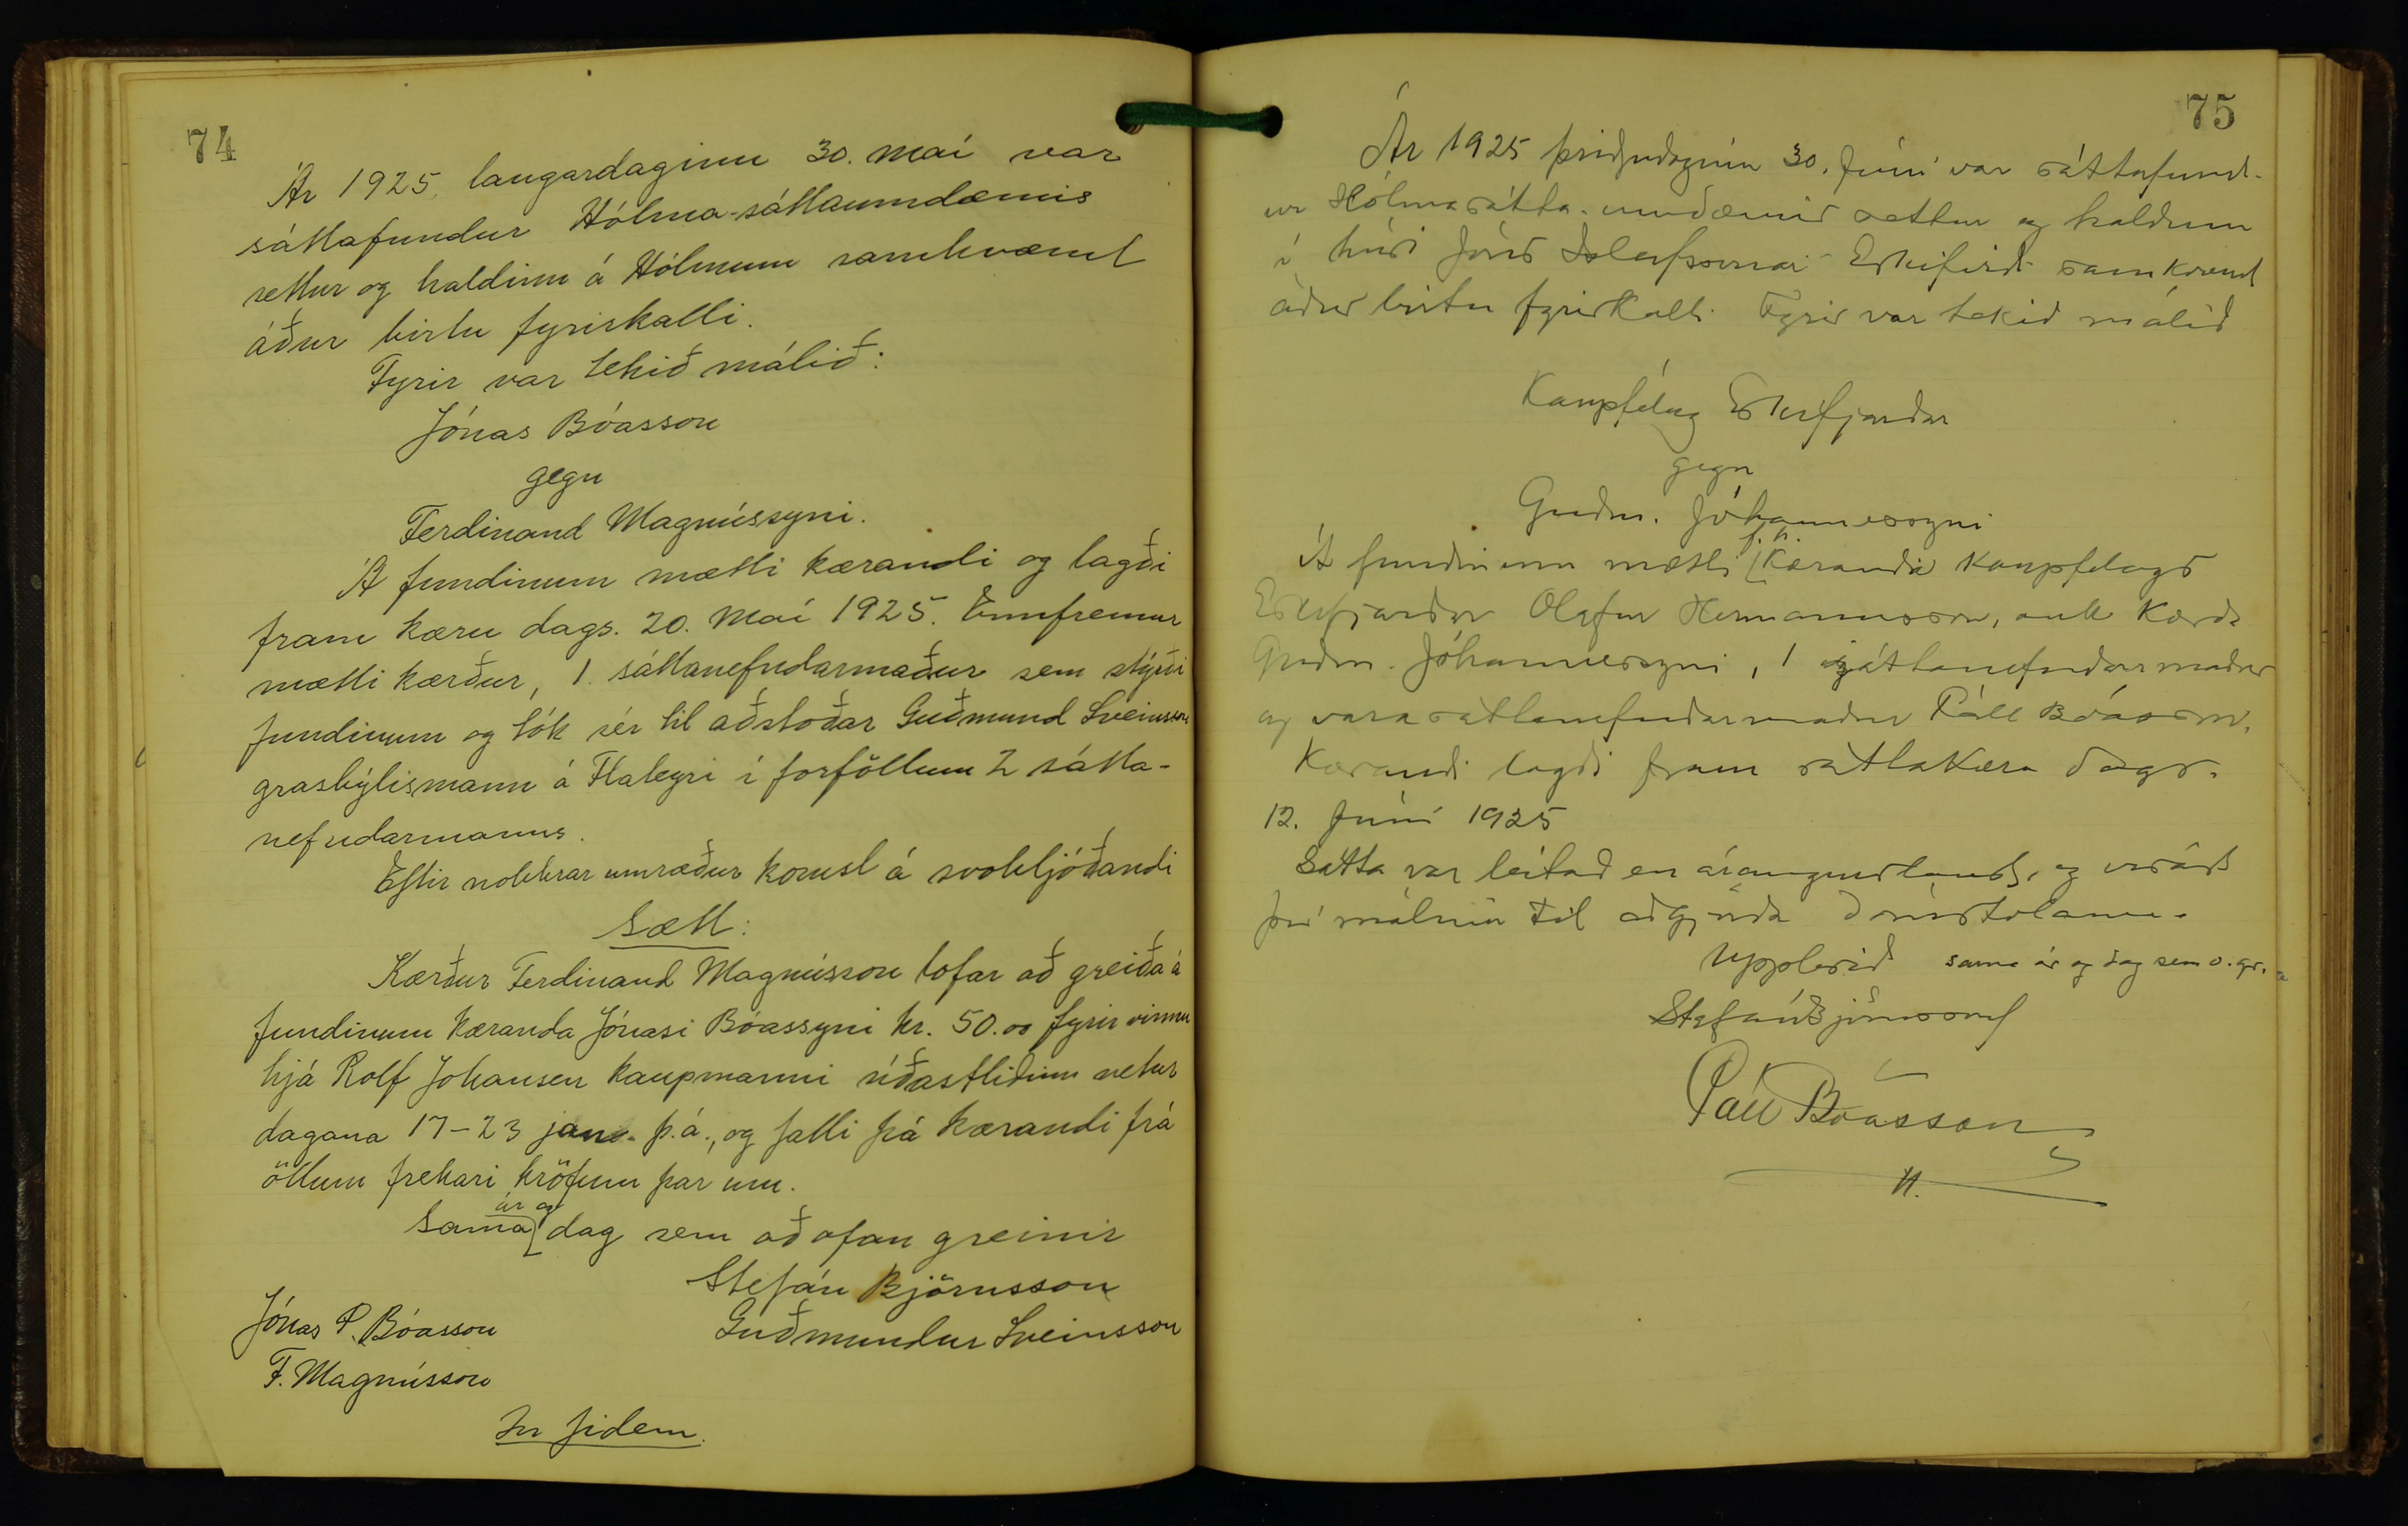 74
Ár 1925, laugardaginn 30. maí var
sáttafundur Hólma-sáttaumdæmis
settur og haldinn á Hólmum samkvæmt
áður birtu fyrirkalli.
Fyrir var tekið málið:
Jónas Bóasson
gegn
Ferdinand Magnússyni.
Á fundinum mætti kærandi og lagði
fram kæru dags. 20. maí 1925. Ennfremur
mætti kærður, 1. sáttanefndarmaður sem stýrði
fundinum og tók sér til aðstoðar Guðmund Sveinsson
grasbýlismann á Flateyri í forföllum 2 sátta-
nefndarmanns.
Eftir nokkrar umræður komst á svohljóðandi
Sætt:
Kærður Ferdinand Magnússon lofar að greiða á
fundinum kæranda Jónasi Bóassyni kr. 50.00 fyrir vinnu
hjá Rolf Johansen kaupmanni síðastliðinn vetur
dagana 17-23 jan. þ.á., og falli þá kærandi frá
öllum frekari kröfum þar um.
ár og
Sama dag sem að ofan greinir
Stefán Björnsson
Jónas P. Bóasson
Guðmundur Sveinsson
F. Magnússon
In fidem.
75
Ár 1925 þriðjudaginn 30. Júní var sáttafund-
ur Hólmasátta-umdæmis settur og haldinn
í húsi Jóns Eskifirði samkvæmt
áður birtu fyrirkalli. Fyrir var tekið málið
Kaupfélag Eskifjarðar
gegn
Guðm. Jóhannessyni
f. h.
Á fundinum mætti kæranda Kaupfélags
Eskifjarðar Olafur Hermannsson, auk kærða
Guðm. Jóhannessyni, 1 sáttanefndarmaður
og varasáttanefndarmaður Páll Bóasson.
Kærandi lagði fram sáttakæru dags.
12. Júní 1925
Sátta var leitað en árangurslaust, og vísað
því málinu til aðgjörða dómstólanna.
Upplesið sama ár og dag sem o. gr.
Stefán Björnsson
Páll Bóasson